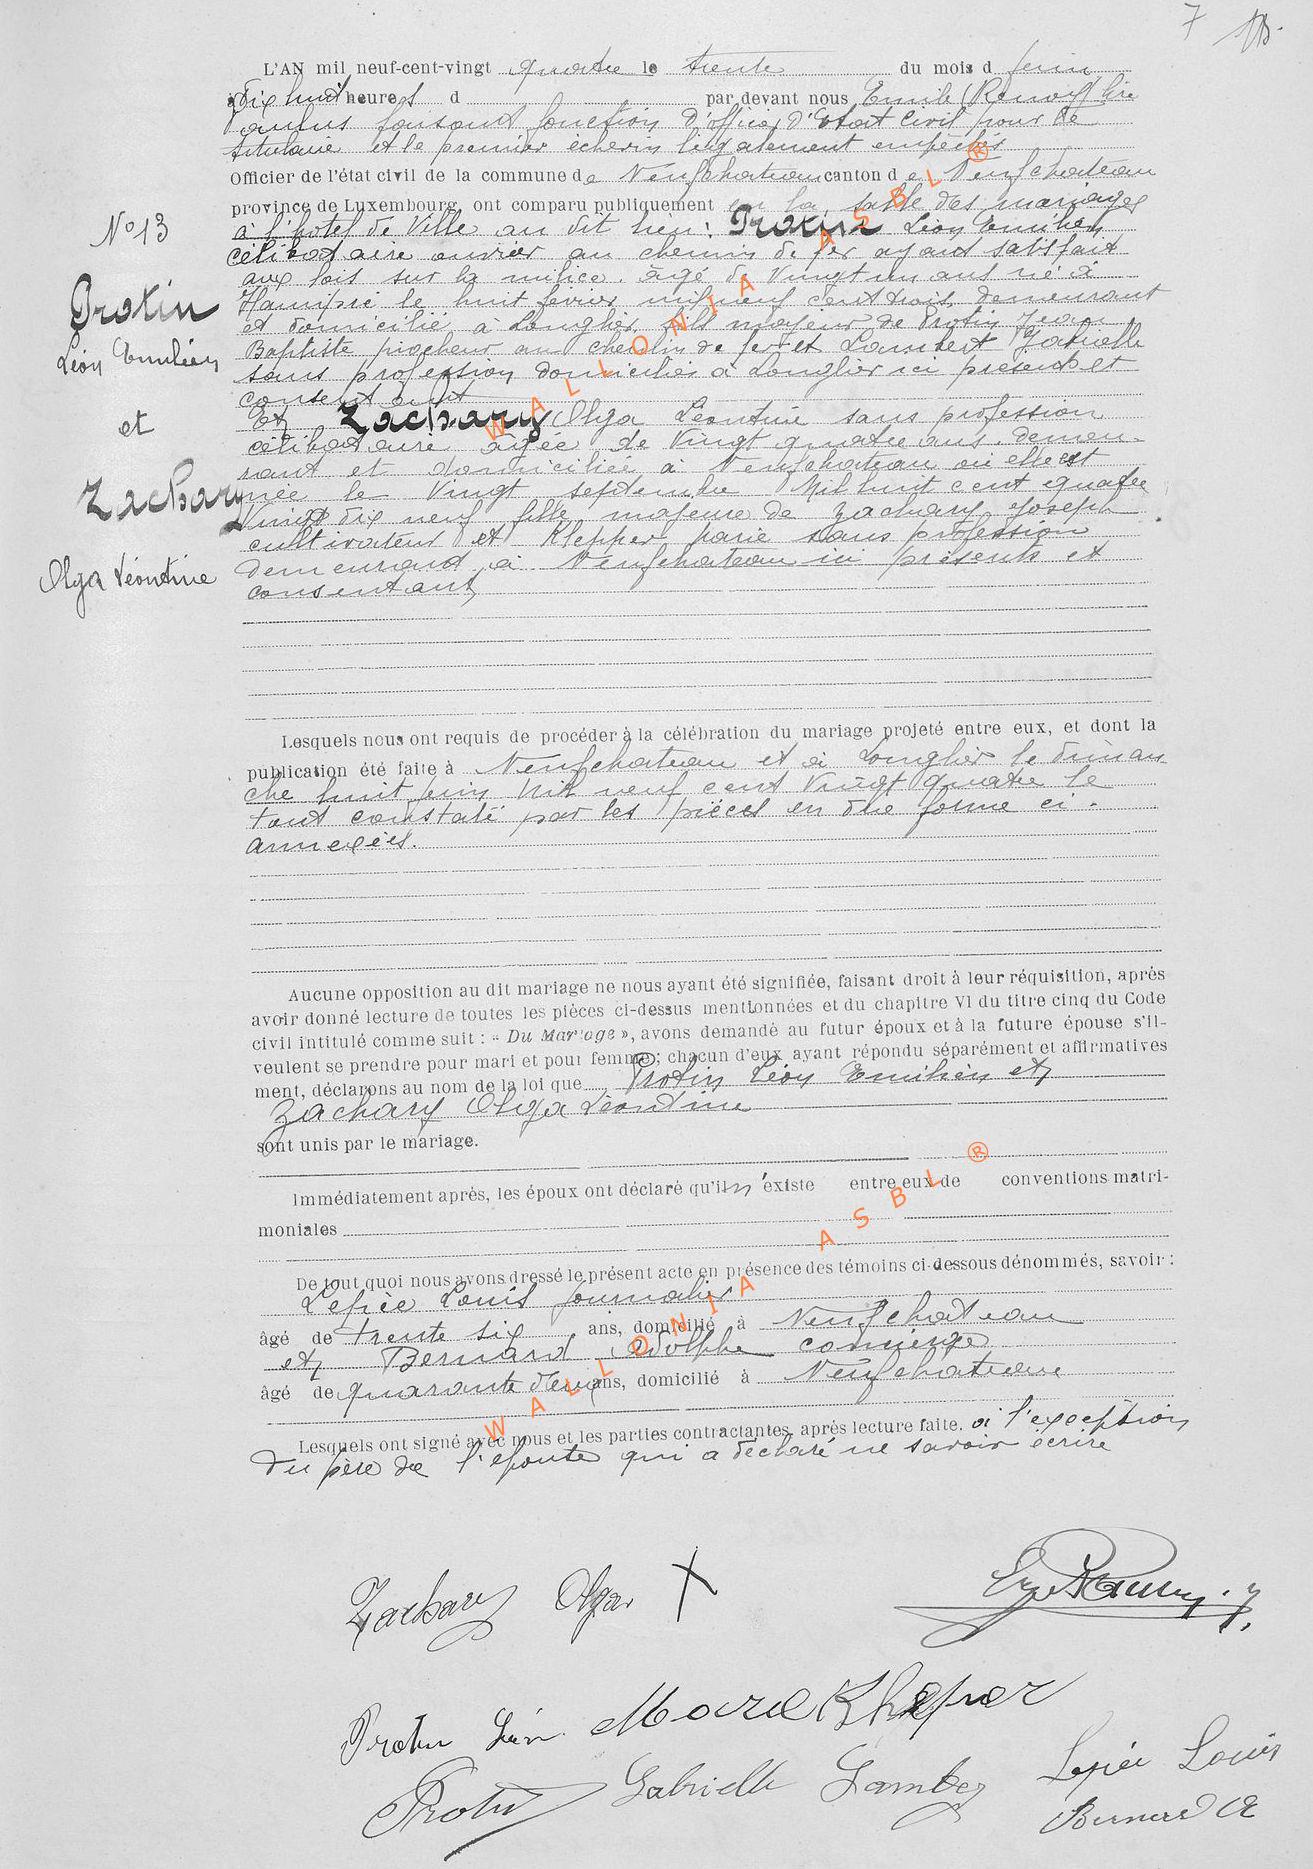 7
L'AN mil neuf-cent-vingt quatre le trente du mois d juin
à Dix huit heures d par devant nous Emile
faisant fonction d'officier d'Etat Civil pour le
titulaire et le premier échevin légalement empêchés
Officier de l'état civil de la commune de Neufchateau canton de Neufchateau
province de Luxembourg, ont comparu publiquement en la salle des mariages
à l'hotel de Ville au dit lieu: Protin Léon Emilien
célibataire ouvrier au chemin de fer ayant satisfait
aux lois sur la milice. âgé de Vingt un ans né à
Hamipré le huit fevrier mil neuf cent trois demeurant
et domicilié à Longlier fils majeur de Protin Jean
Baptiste piocheur au chemin de fer et Lambert Gabrielle
sans profession domiciliés à Longlier ici présents et
consentants
Et Zachary Olga Léontine sans profession
célibataire âgée de Vingt quatre ans. demeu-
rant et domiciliée à Neufchateau où elle est
née le Vingt septembre Mil huit cent quatre
Vingt dix neuf fille majeure de Zachary Joseph
cultivateur et Klepper Marie sans profession
demeurant à Neufchateau ici présents et
consentants
No 13
Protin
Léon Emilien
et
Zachary
Olga Léontine
Lesquels nous ont requis de procéder à la célébration du mariage projeté entre eux, et dont la
publication été faite à Neufchateau et à Longlier le diman
che huit juin Mil neuf cent Vingt quatre le
tout constaté par les pièces en due forme ci-
annexées.
Aucune opposition au dit mariage ne nous ayant été signifiée, faisant droit à leur réquisition, après
avoir donné lecture de toutes les pièces ci-dessus mentionnées et du chapitre VI du titre cinq du Code
civil intitulé comme suit : « Du Mariage », avons demandé au futur époux et à la future épouse s'il-
veulent se prendre pour mari et pour femme ; chacun d'eux ayant répondu séparément et affirmatives
ment, déclarons au nom de la loi que Protin Léon Emilien et
Zachary Olga Léontine
sont unis par le mariage.
Immédiatement après, les époux ont déclaré qu'il n'existe entre eux de conventions matri-
moniales
De tout quoi nous avons dressé le présent acte en présence des témoins ci-dessous dénommés, savoir :
Lepièe Louis journalier
âgé de trente six ans, domicilié à Neufchateau
et Bernard Adolphe concierge
âgé de quarante deux ans, domicilié à Neufchateau
Lesquels ont signé avec nous et les parties contractantes, après lecture faite. à l'exception
du père de l'épouse qui a déclaré ne savoir écrire
Zachary Olga X
Protin Léon Marie Klepper
Protin Gabrielle Lambert Lepièe Louis
Bernard A
WALLONIA ASBL ®
WALLONIA ASBL ®